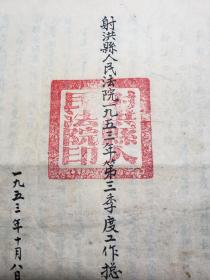 射洪縣人民法院一九五三年第三季度工作
射洪縣人
民法院印
一九五三年十月八日